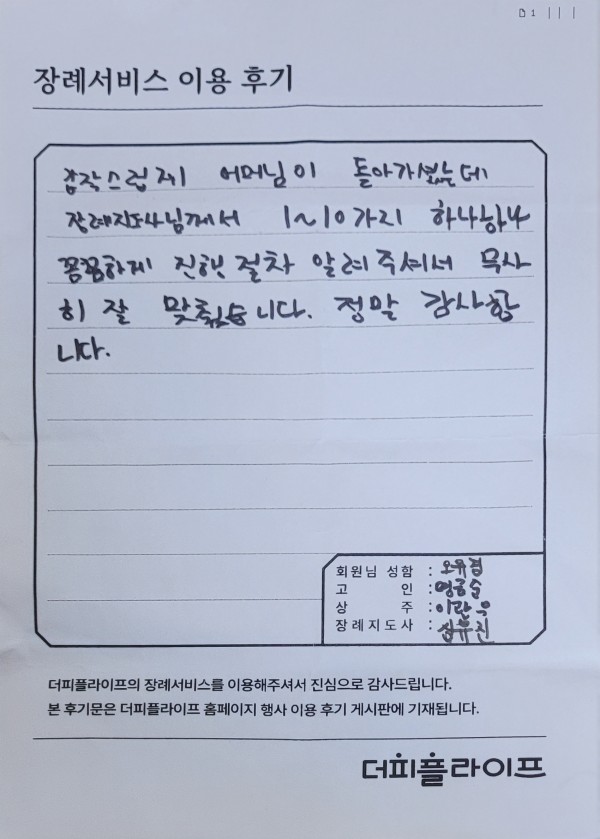 1
장례서비스 이용 후기
갑작스럽게 어머님이 돌아가셨는데
장례지도사님께서 1~10가지 하나하나
꼼꼼하게 진행 절차 알려주셔서 무사
히 잘 맞췄습니다. 정말 감사합
니다.
회원님 성함 : 오유겸
고 인 :
상 주 : 이란옥
장례지도사 : 심유진
더피플라이프의 장례서비스를 이용해주셔서 진심으로 감사드립니다.
본 후기문은 더피플라이프 홈페이지 행사 이용 후기 게시판에 기재됩니다.
더피플라이프